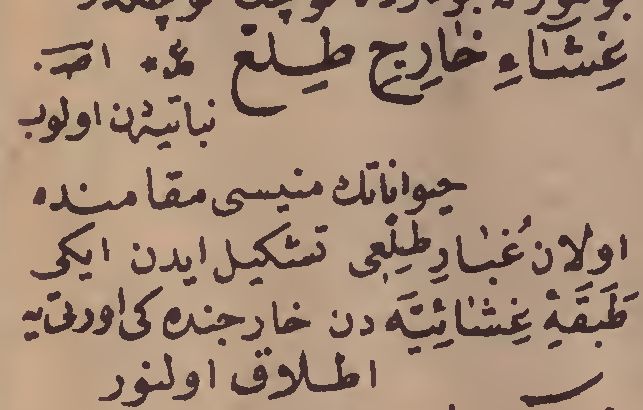 غِشَآءِ خَارِجِ طِلْع
نباتیه‌دن اولوب
حیواناتك منیسی مقامنده
اولان غُبَارِ طِلْعِی تشکیل ایدن ایکی
طَبَقَهٔ غِشَائِیَّه دن خارجنده کی اورتی‌یه
اطلاق اولنور